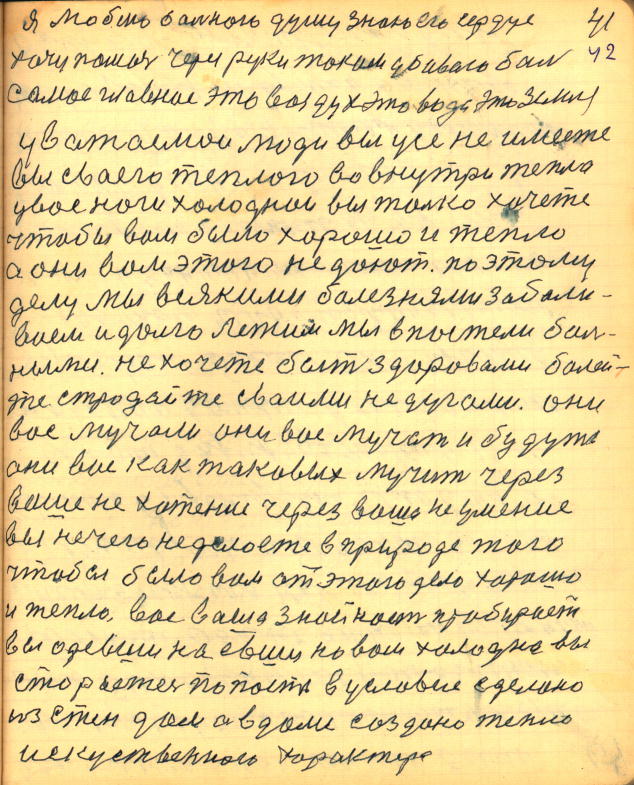 я люблю балного душу знаю его сердце 41
хочу помоч через руки током убиваю бал 42
самое главное это воздух это вода это земля
уважаемаи люди вы усе не имеете
вы сваего теплого во внутри тепла
увас ноги холоднаи вы толко хочете
чтобы вам было хорошо и тепло
а они вам этого не дают. поэтому
делу мы всякими балезнями забали-
ваем и долго лежим мы в постели бал-
ными. не хочете быт здоровами балей-
те стродайте сваими недугами. они
вас мучали они вас мучат и будут
они вас как таковых мучит через
ваше не хотение через ваша не умение
вы нечего неделаете в природе того
чтобы было вам от этого дела хорошо
и тепло. вас ваша
вы одевши на евши но вам холодна вы
стораетес попасть в условие сделано
из стен дом а в доме создано тепло
искуственного характера